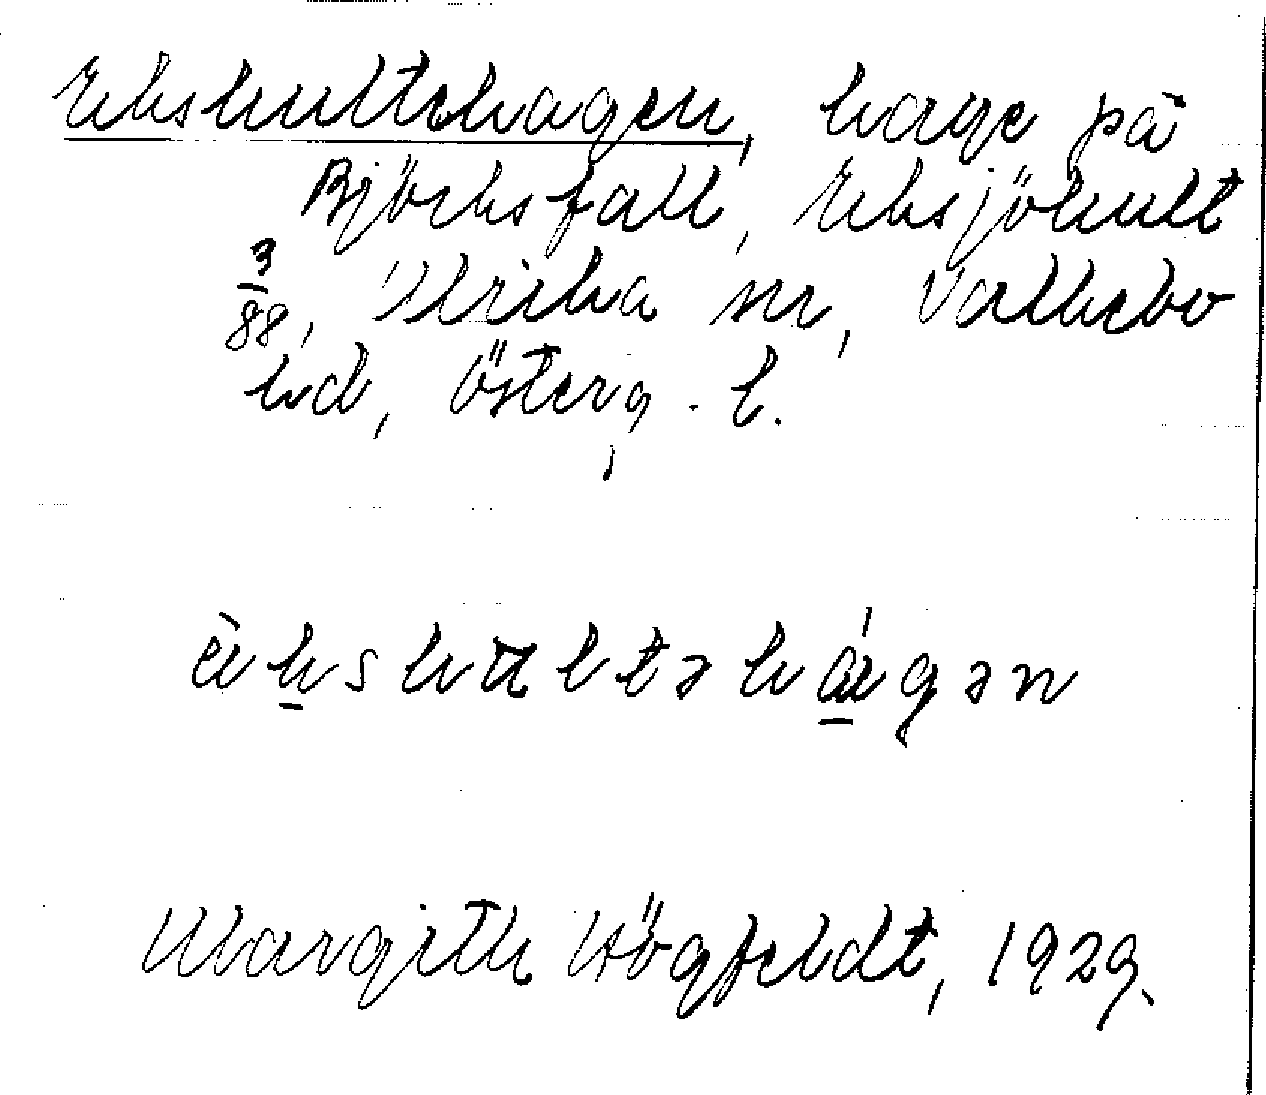 Ekshultehagen, hage på
Björksfall, Eksjöhult
3/88, Ulrika sn, Valkebo
hd, Österg. l.
èkshultəhágən
Margith Högfeldt, 1929.